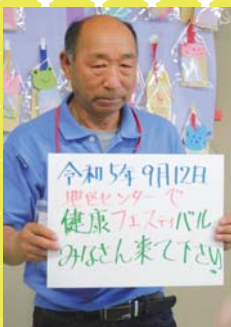 令和5年9月12日
地区センターで
健康フェスティバル
みなさん来て下さい!